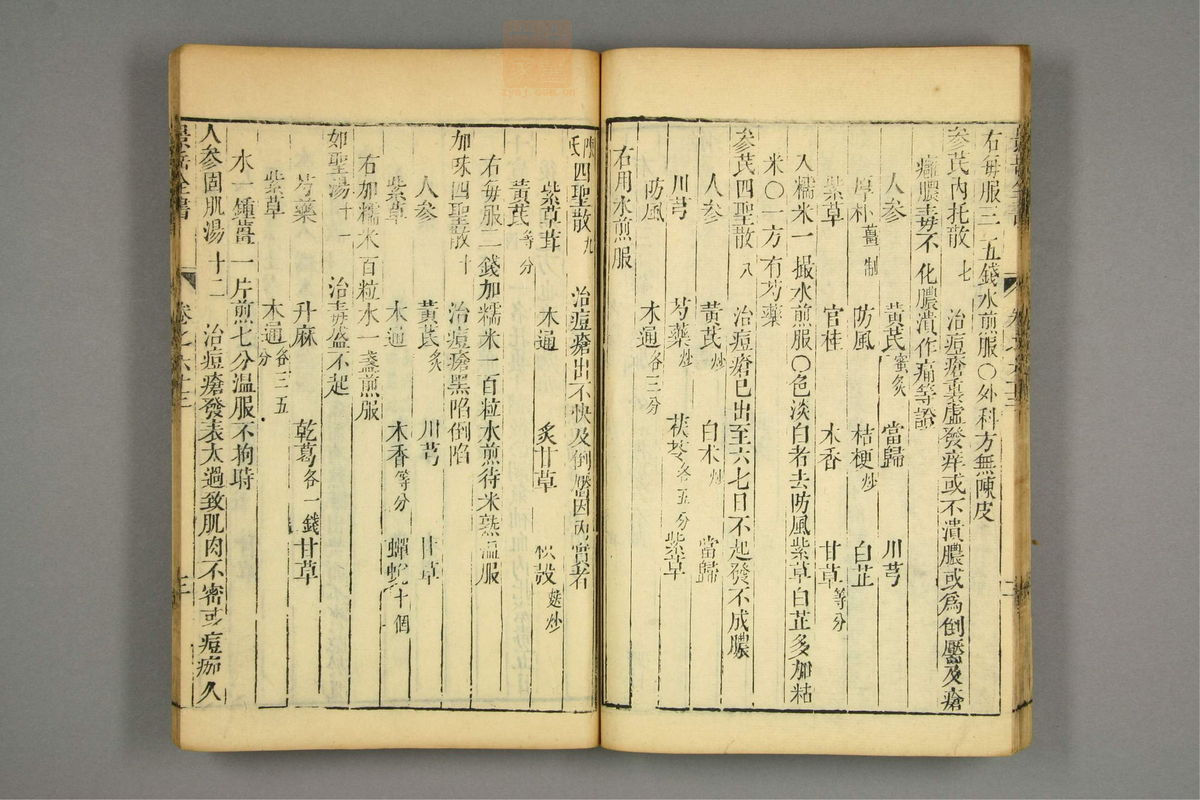 右每服三五錢水煎服○外科方無陳皮
參芪內托散 七 治痘瘡裏虛發痒或不潰膿或為倒靨及瘡
癰膿毒不化膿潰作痛等證
人參 黃芪蜜炙 當歸 川芎
厚朴薑制 防風 桔梗炒 白芷
紫草 官桂 木香 甘草等分
入糯米一撮水煎服○色淡白者去防風紫草白芷多加粘
米○一方有芍藥
參芪四聖散 八 治痘瘡已出至六七日不起發不成膿
人參 黃芪炒 白朮炒 當歸
川芎 芍藥炒 茯苓各五分 紫草
防風 木通各三分
右用水煎服
陳氏四聖散 九 治痘瘡出不快及倒靨因內實者
紫草茸 木通 炙甘草 枳殼麩炒
黃芪等分
右每服二錢加糯米一百粒水煎待米熟溫服
加味四聖散 十 治痘瘡黑陷倒陷
人參 黃芪炙 川芎 甘草
紫草 木通 木香等分 蟬蛻十個
右加糯米百粒水一盞煎服
如聖湯 十一 治毒盛不起
芍藥 升麻 乾葛各一錢 甘草
紫草 木通各三五分
水一鍾薑一片煎七分溫服不拘時
人參固肌湯 十二 治痘瘡發表太過致肌肉不密或痘痂久
景岳全書 卷之六十三 三